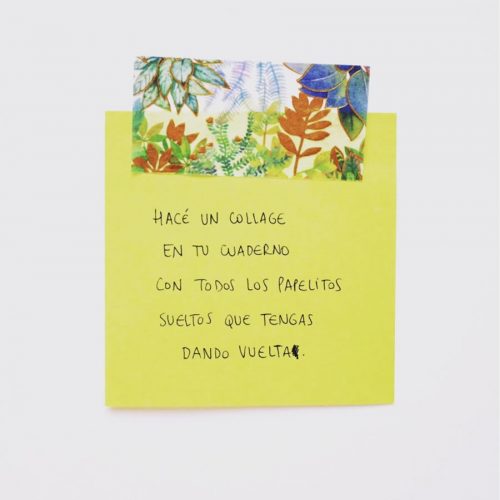 HACÉ UN COLLAGE
EN TU CUADERNO
CON TODOS LOS PAPELITOS
SUELTOS QUE TENGAS
DANDO VUELTA.